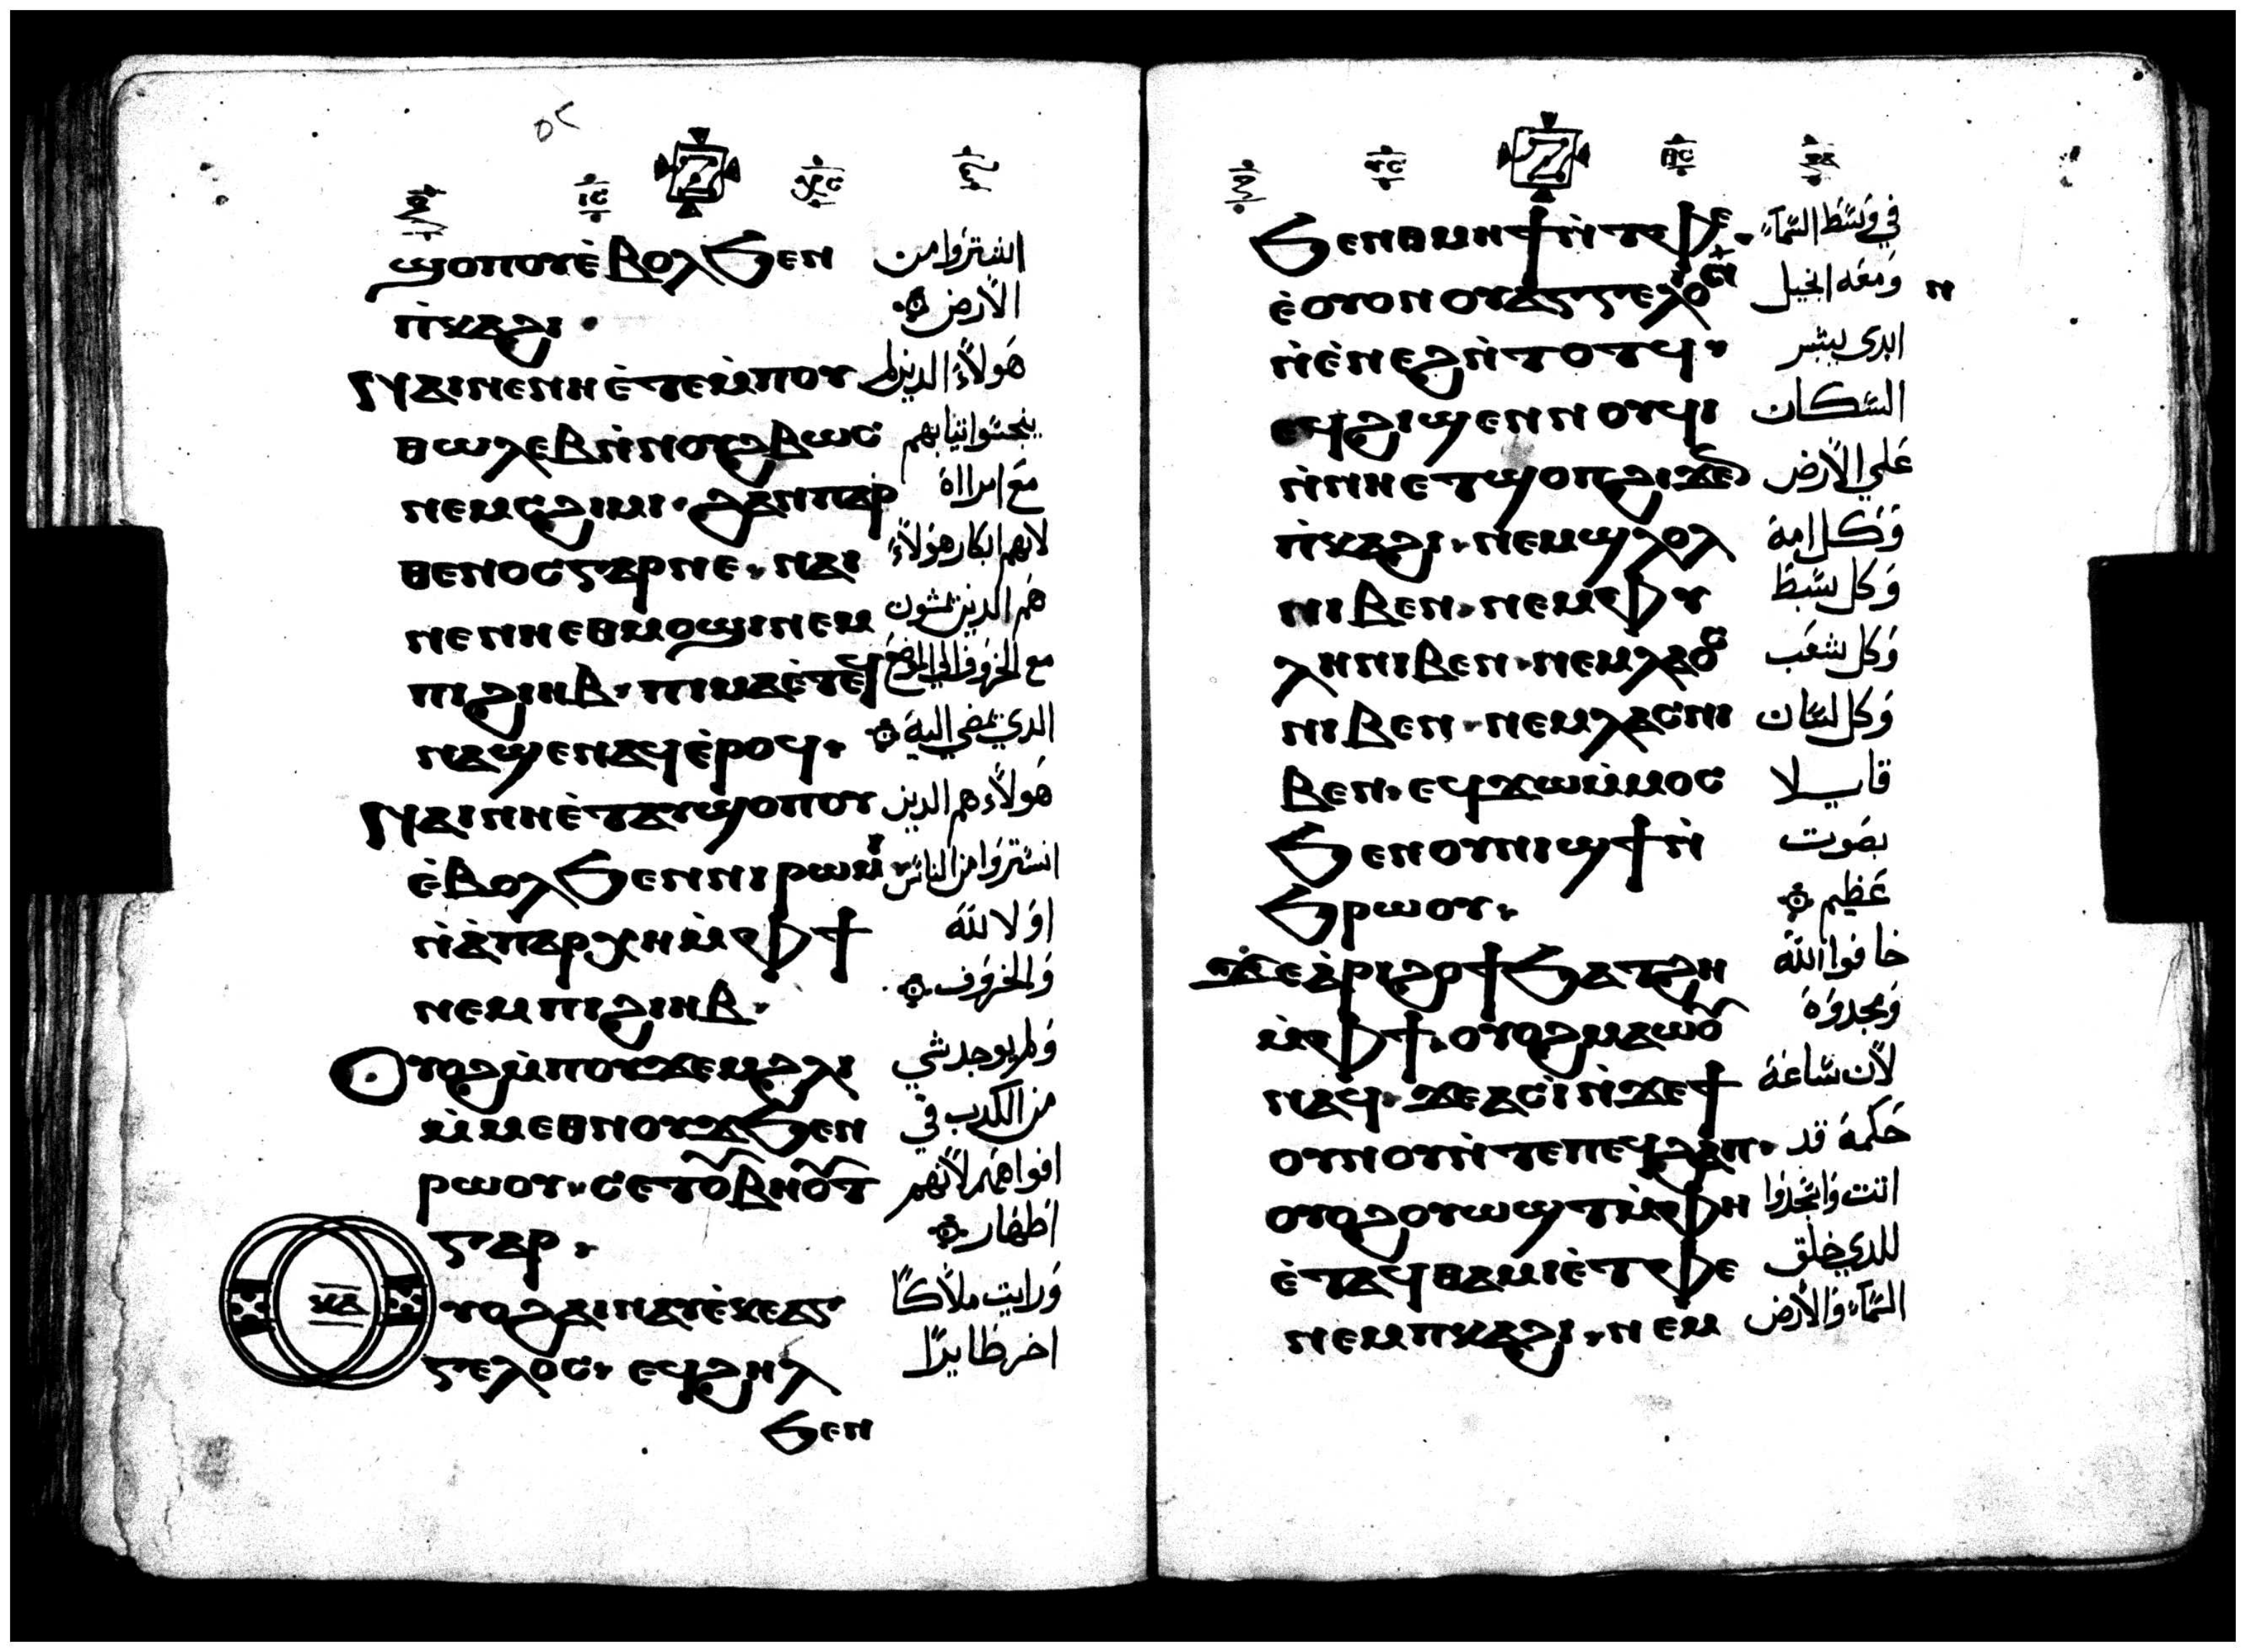 ⲓⲥ ⲭⲥ
ϣⲟⲡⲟⲩ ⲉ̀ⲃⲟⲗ ϧⲉⲛ اشتروا من
ⲡ̀ⲕⲁϩⲓ الارض
ⲛⲁⲓ ⲛⲉ ⲛⲏ ⲉ̀ⲧⲉ ⲙ̀ⲡⲟⲩ هولاء الدين لم
ⲑⲱⲗⲉⲃ ⲛ̀ⲛⲟⲩϩⲃⲱⲥ ينجسوا تيابهم
ⲛⲉⲙ ⲥϩⲓⲙⲓ ϩⲁⲛⲡⲁⲣ مع امراة
ⲑⲉⲛⲟⲥ ⲅⲁⲣ ⲛⲉ ⲛⲁⲓ لانهم ابكار هولاء
ⲛⲉ ⲛⲏ ⲉⲑⲙⲟϣⲓ ⲛⲉⲙ هم الدين يمشون
ⲡⲓϩⲓⲏⲃ ⲡⲓⲙⲁ ⲉ̀ⲧⲉϥ مع الخروف الي الموضع
ⲛⲁϣⲉⲛⲁϥ ⲉ̀ⲣⲟϥ الدي يمضي اليه
ⲛⲁⲓ ⲛⲏ ⲉ̀ⲧⲁⲩϣⲟⲡⲟⲩ هولاء هم الدين
ⲉ̀ⲃⲟⲗ ϧⲉⲛ ⲛⲓⲣⲱⲙⲓ اشتروا من الناس
ⲛ̀ⲁ̀ⲡⲁⲣⲭⲏ ⲙ̀ⲫϯ اولا لله
ⲛⲉⲙ ⲡⲓϩⲓⲏⲃ والخروف
ⲟⲩⲟϩ ⲙ̀ⲡⲟⲩϫⲉⲙ ϩⲗⲓ ولم يوجد شي
ⲙ̀ⲙⲉⲑⲛⲟⲩϫ ϧⲉⲛ من الكدب في
ⲣⲱⲟⲩ ⲥⲉⲧⲟⲩⲃⲏⲟⲩⲧ افواههم لانهم
ⲅⲁⲣ اطهار
ⲕⲁ ⲟⲩⲟϩ ⲁⲓⲛⲁⲩ ⲉ̀ⲕⲉⲁⲅ ورايت ملاكا
ⲅⲉⲗⲟⲥ ⲉϥϩⲏⲗ اخر طايرا
ϧⲉⲛ
ⲩⲥ ⲑⲥ
ϧⲉⲛ ⲑⲙⲏϯ ⲛ̀ⲧⲫⲉ في وسط السماء
ⲉ̀ⲟⲩⲟⲛ ⲟⲩⲁⲅⲅⲉⲗⲟⲛ ومعه انجيل ⲛ
ⲛ̀ⲉ̀ⲛⲉϩ ⲛ̀ⲧⲟⲧϥ ابدي يبشر
ⲉϥϩⲓϣⲉⲛⲛⲟⲩϥⲓ السكان
ⲛ̀ⲛⲏ ⲉⲧϣⲟⲡ ϩⲓϫⲉⲛ علي الارض
ⲡ̀ⲕⲁϩⲓ ⲛⲉⲙ ϣⲗⲟⲗ وكل امة
ⲛⲓⲃⲉⲛ ⲛⲉⲙ ⲫⲩ وكل سبط
ⲗⲏ ⲛⲓⲃⲉⲛ ⲛⲉⲙ ⲗⲁⲟⲥ وكل شعب
ⲛⲓⲃⲉⲛ ⲛⲉⲙ ⲗⲁⲥ ⲛⲓ وكل لسان
ⲃⲉⲛ ⲉϥϫⲱ ⲙ̀ⲙⲟⲥ قايلا
ϧⲉⲛ ⲟⲩⲛⲓϣϯ ⲛ̀ بصوت
ϧⲣⲱⲟⲩ عظيم
ϫⲉ ⲁ̀ⲣⲓϩⲟϯ ϧⲁⲧϩⲏ خافوا الله
ⲙ̀ⲫϯ ⲟⲩⲟϩ ⲙⲁⲱⲟⲩ ومجدوه
ⲛⲁϥ ϫⲉ ⲁⲥⲓ̀ ⲛ̀ϫⲉ ϯ لان ساعة
ⲟⲩⲛⲟⲩ ⲛ̀ⲧⲉ ⲡⲉϥϩⲁⲡ حكمة قد
ⲟⲩⲟϩ ⲟⲩⲱϣⲧ ⲙ̀ⲫⲏ اتت واسجدوا
ⲉ̀ⲧⲁϥⲑⲁⲙⲓⲉ̀ ⲧⲫⲉ للدي خلق
ⲛⲉⲙ ⲡⲕⲁϩⲓ ⲛⲉⲙ السماء والارض